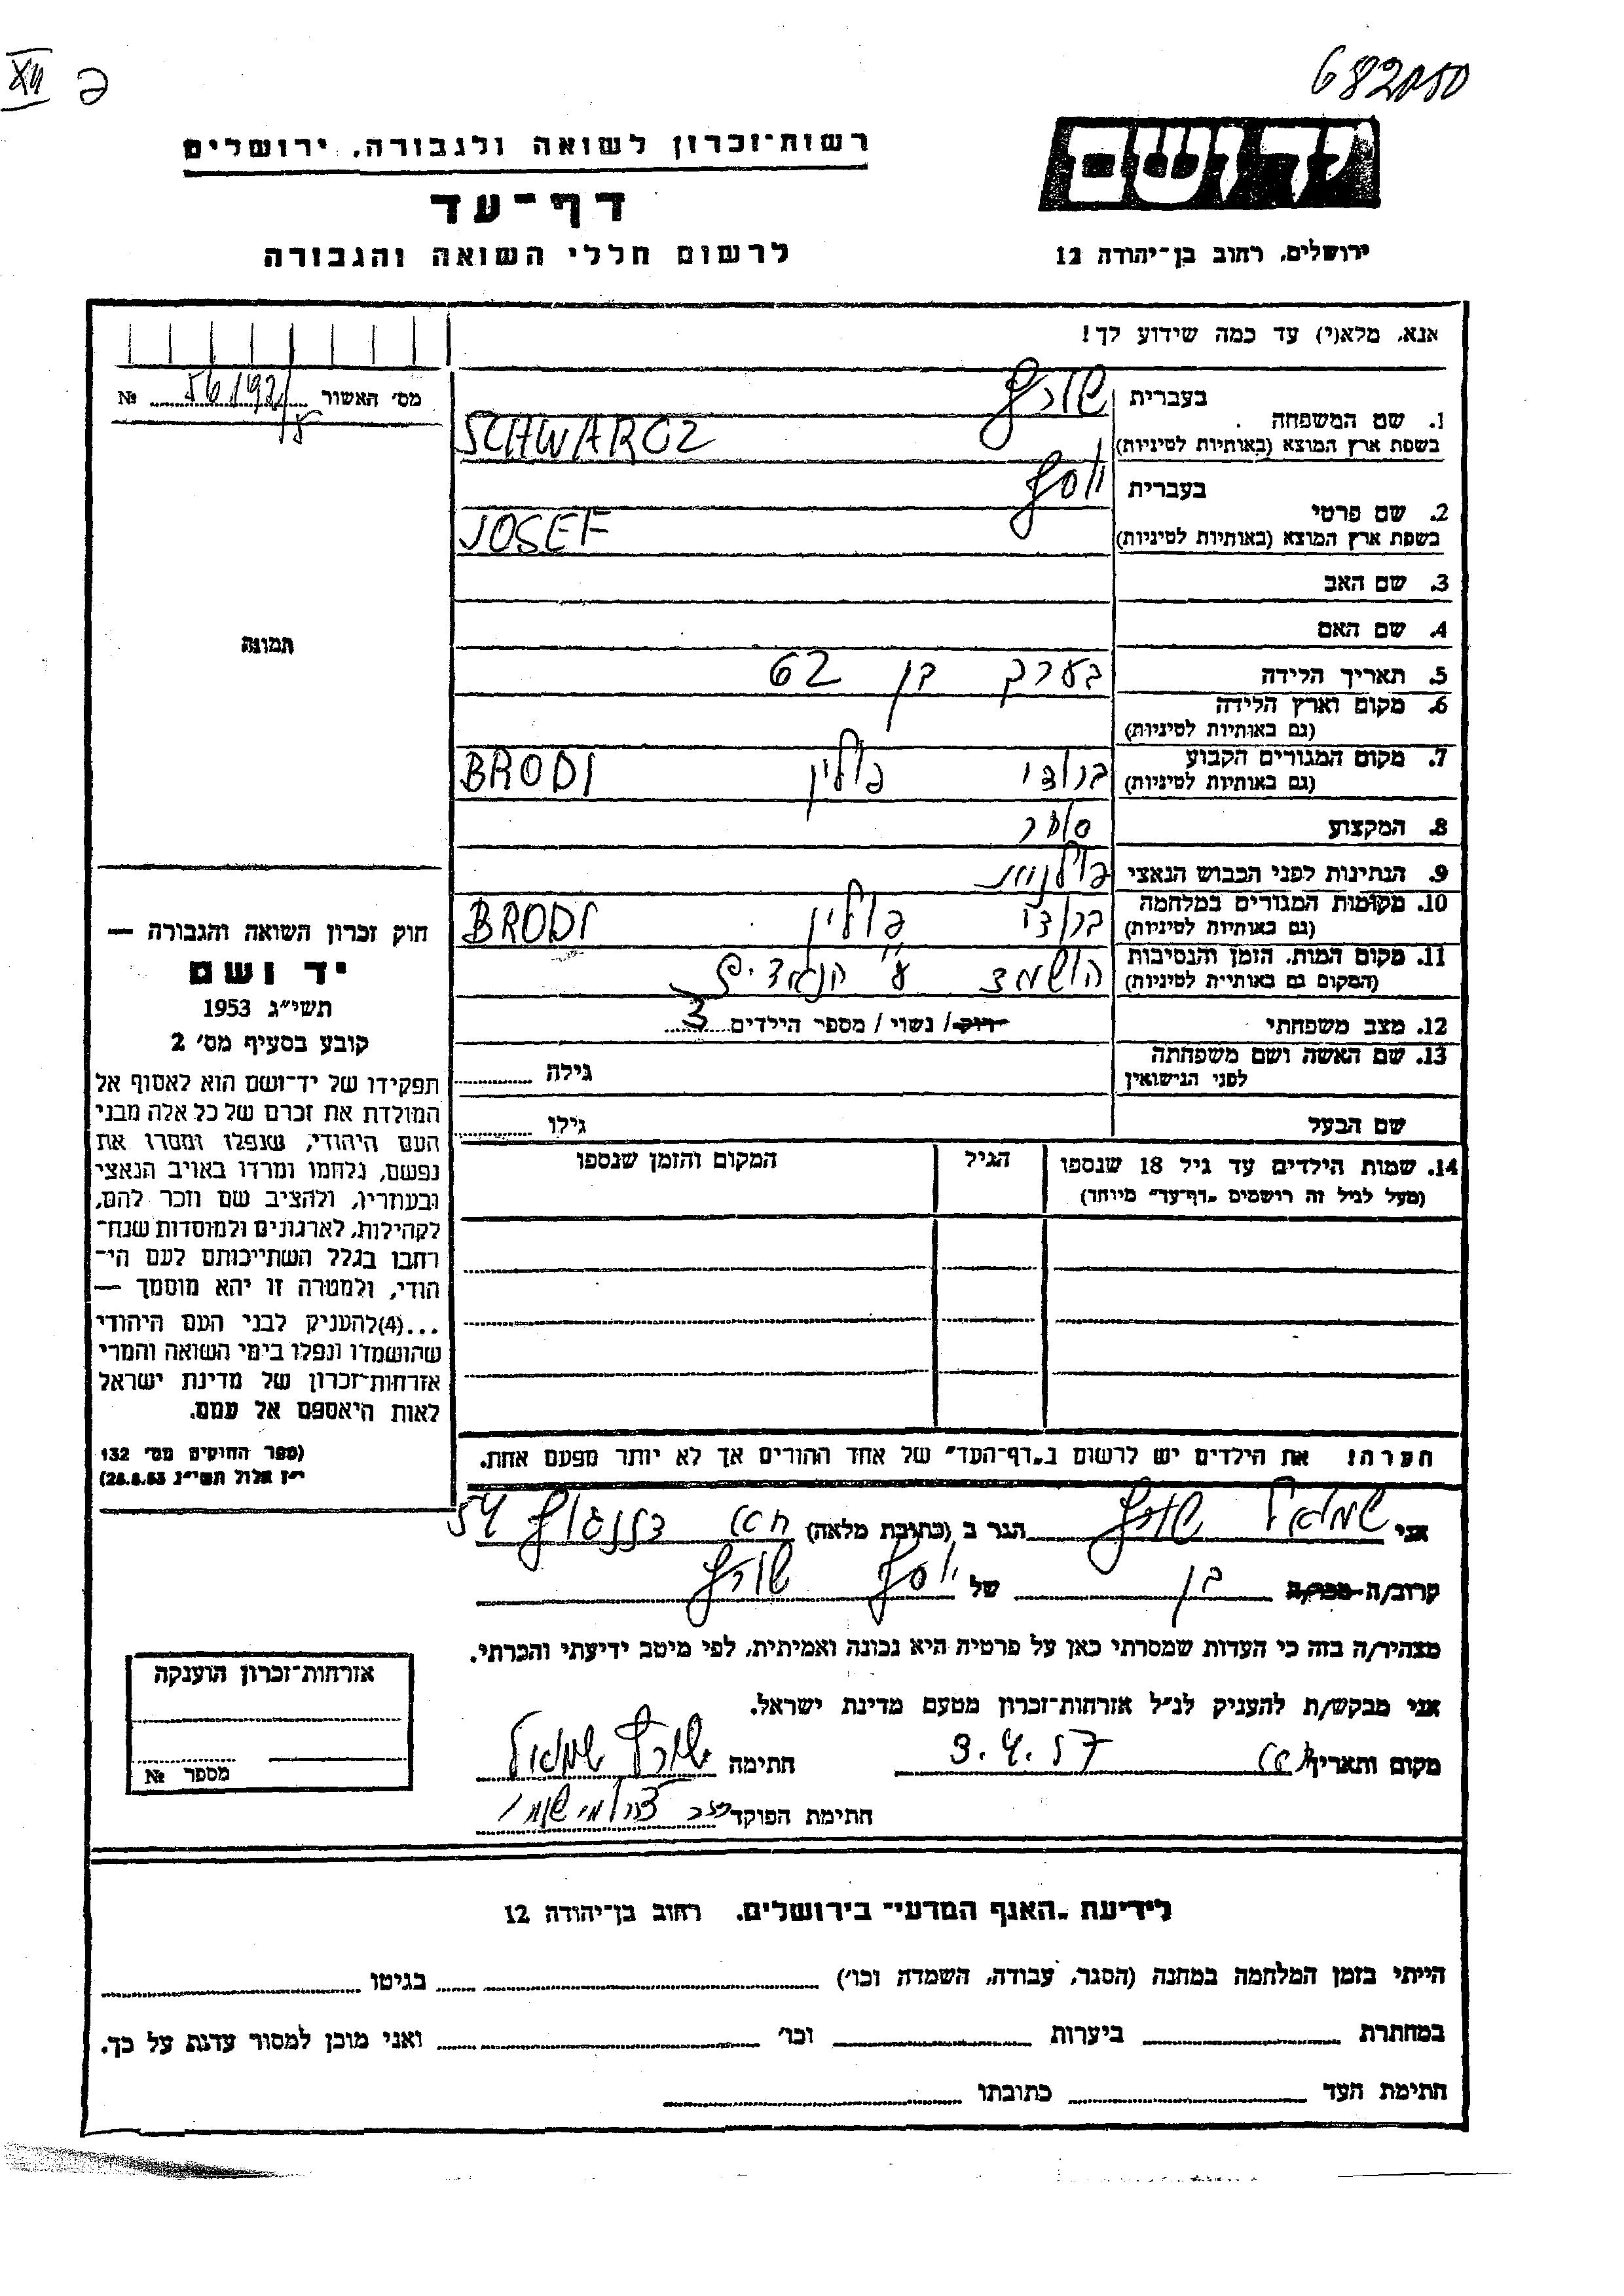 XII
682150
יד ושם
ירושלים, רחוב בן־יהודה 12
רשות־זכרון לשואה ולגבורה, ירושלים
דף־עד
לרשום חללי השואה והגבורה
אנא, מלא(י) עד כמה שידוע לך!
מס׳ האשור 56/192/ №
1. שם המשפחה בעברית שורץ
בשפת ארץ המוצא (באותיות לטיניות) SCHWAROZ
2. שם פרטי בעברית יוסף
בשפת ארץ המוצא (באותיות לטיניות) JOSEF
3. שם האב
4. שם האם
5. תאריך הלידה בערך בן 62
6. מקום וארץ הלידה
(גם באותיות לטיניות)
7. מקום המגורים הקבוע ברודי פולין BRODI
(גם באותיות לטיניות)
8. המקצוע סוחר
9. הנתינות לפני הכבוש הנאצי פולנית
10. מקומות המגורים במלחמה ברודי פולין BRODI
(גם באותיות לטיניות)
11. מקום המות, הזמן והנסיבות הושמד ע״י הנאצים
(המקום גם באותיות לטיניות)
12. מצב משפחתי רוק / נשוי / מספר הילדים 3
13. שם האשה ושם משפחתה גילה
לפני הנישואין
שם הבעל גילו
14. שמות הילדים עד גיל 18 שנספו הגיל המקום והזמן שנספו
(מעל לגיל זה רושמים „דף־עד״ מיוחד)
הערה! את הילדים יש לרשום ב„דף־העד״ של אחד ההורים אך לא יותר מפעם אחת.
תמונה
חוק זכרון השואה והגבורה —
יד ושם
תשי״ג 1953
קובע בסעיף מס׳ 2
תפקידו של יד־ושם הוא לאסוף אל
המולדת את זכרם של כל אלה מבני
העם היהודי, שנפלו ומסרו את
נפשם, נלחמו ומרדו באויב הנאצי
ובעוזריו, ולהציב שם וזכר להם,
לקהילות, לארגונים ולמוסדות שנח־
רחבו בגלל השתייכותם לעם הי־
הודי, ולמטרה זו יהא מוסמך —
...(4) להעניק לבני העם היהודי
שהושמדו ונפלו בימי השואה והמרי
אזרחות־זכרון של מדינת ישראל
לאות היאספם אל עמם.
(ספר החוקים מס׳ 132
י״ז אלול תשי״ג 28.8.53)
אני שמואל שורץ הגר ב (כתובת מלאה) 54
קרוב/ה מכר/ה בן של יוסף שורץ
מצהיר/ה בזה כי העדות שמסרתי כאן על פרטיה היא נכונה ואמיתית, לפי מיטב ידיעתי והכרתי.
אני מבקש/ת להעניק לנ״ל אזרחות־זכרון מטעם מדינת ישראל.
מקום ותאריך 3.4.57 חתימה שורץ שמואל
חתימת הפוקד
אזרחות־זכרון הוענקה
מספר №
לידיעת „האגף המדעי״ בירושלים, רחוב בן־יהודה 12
הייתי בזמן המלחמה במחנה (הסגר, עבודה, השמדה וכו׳) בגיטו
במחתרת ביערות וכו׳ ואני מוכן למסור עדות על כך.
חתימת העד כתובתו